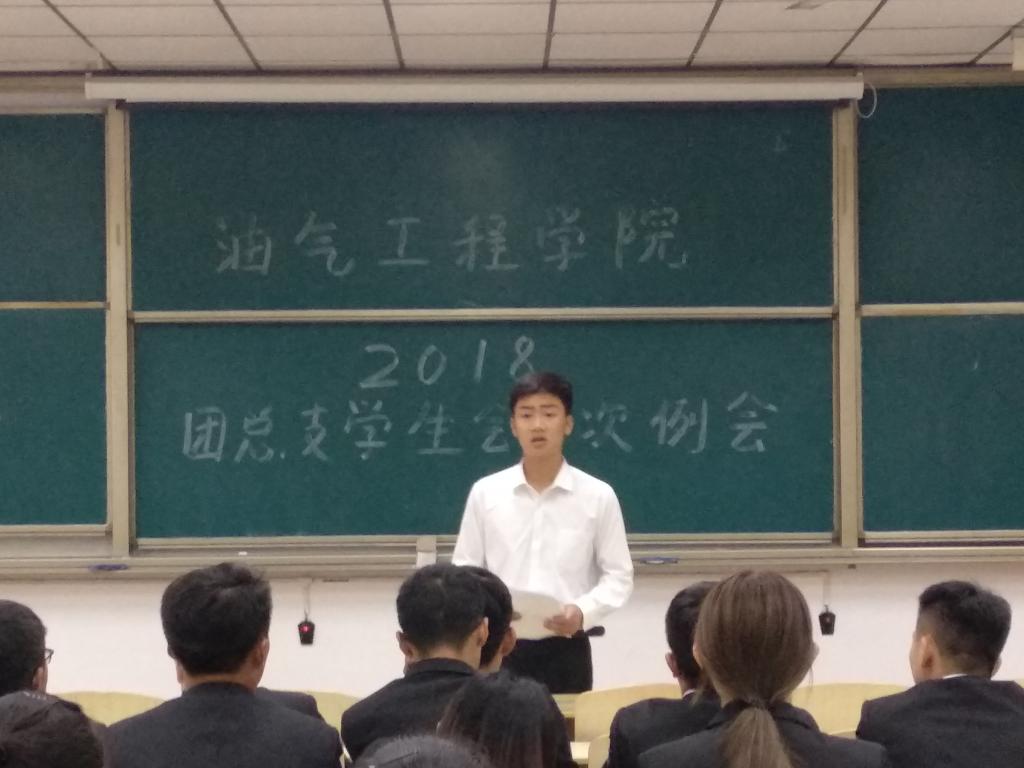 油气工程学院
2018
团总支学生会 次例会